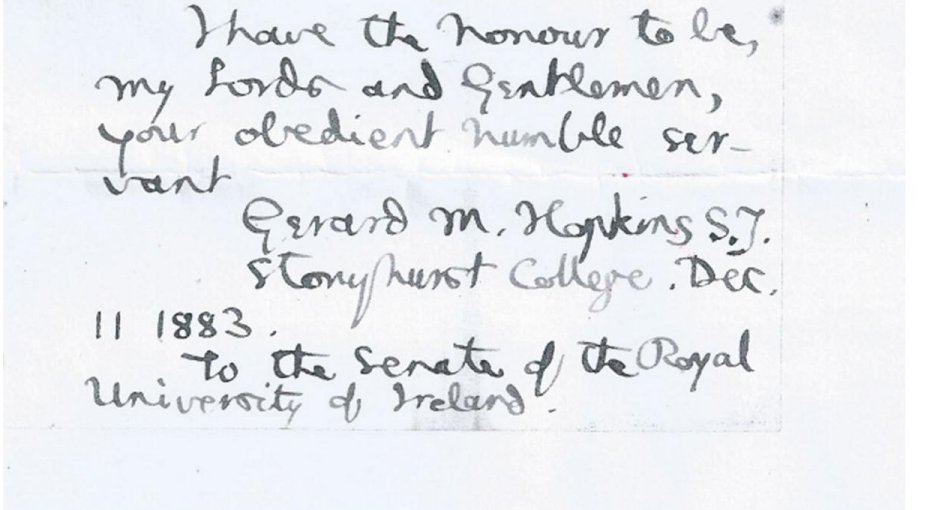 I have the honour to be,
my Lords and Gentlemen,
your obedient humble ser-
vant
Gerard M. Hopkins S.J.
Stonyhurst College. Dec.
11 1883.
To the Senate of the Royal
University of Ireland.